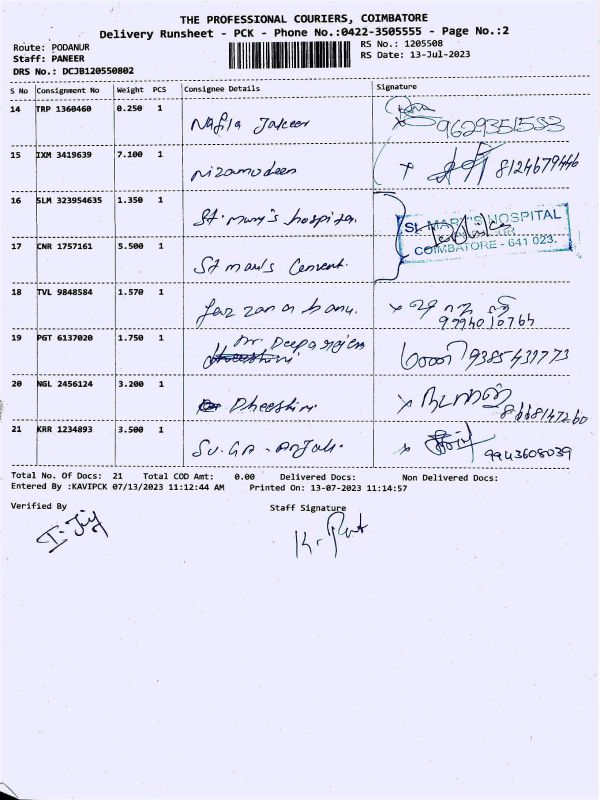 THE PROFESSIONAL COURIERS, COIMBATORE
Delivery Runsheet - PCK - Phone No.:0422-3505555 - Page No.:2
Route: PODANUR
RS No.: 1205508
Staff: PANEER
RS Date: 13-Jul-2023
DRS No.: DCJB120550802
S No Consignment No Weight PCS Consignee Details Signature
14 TRP 1360460 0.250 1 Nafila Jakeer x 9629351553
15 IXM 3419639 7.100 1 Nizamudeen x 8124679446
16 SLM 323954635 1.350 1 St. Mary's hospital
ST. MARY'S HOSPITAL
COIMBATORE - 641 023.
17 CNR 1757161 5.500 1 St Convent.
18 TVL 9848584 1.570 1 banu. x 9994010765
19 PGT 6137020 1.750 1 9385431773
20 NGL 2456124 3.200 1 Dheeshini x
21 KRR 1234893 3.500 1 x 9943608039
Total No. Of Docs: 21 Total COD Amt: 0.00 Delivered Docs: Non Delivered Docs:
Entered By :KAVIPCK 07/13/2023 11:12:44 AM Printed On: 13-07-2023 11:14:57
Verified By Staff Signature